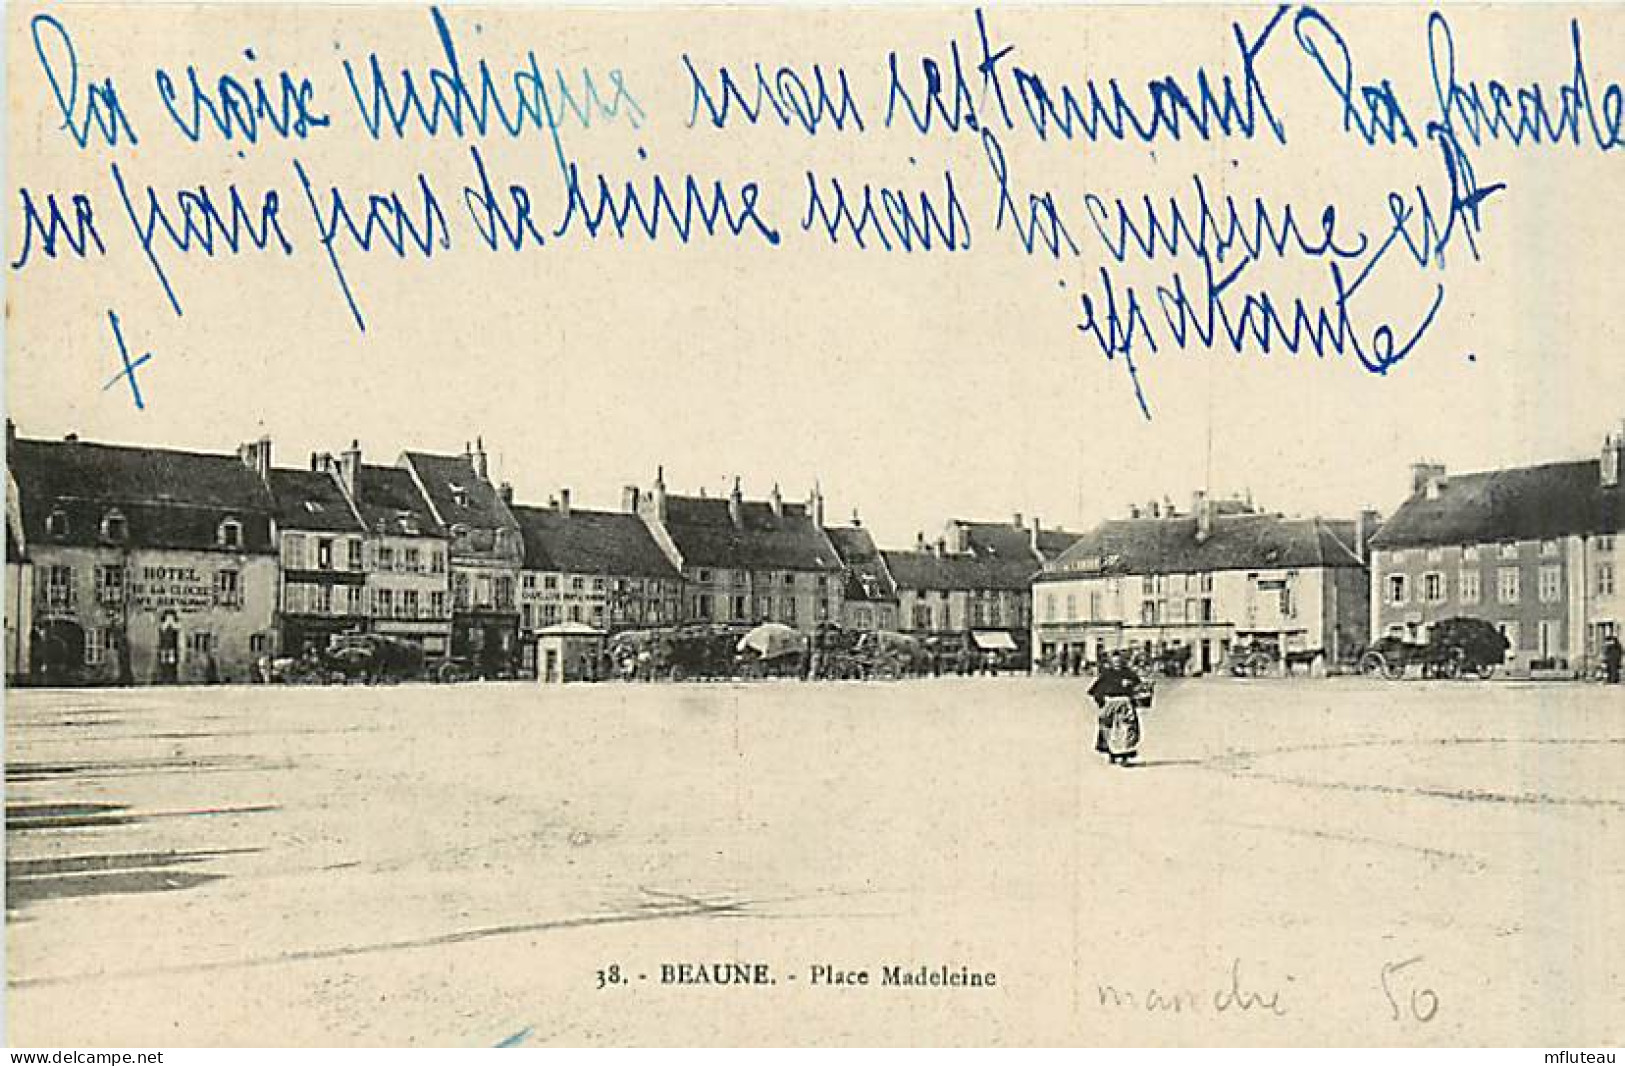 la croix indique mon restaurant la facade
ne paie pas de mine mais la cuisine est
épatante.
HÔTEL
DE LA CLOCHE
CAFÉ RESTAURANT
38. - BEAUNE. - Place Madeleine
marché 50
mfluteau